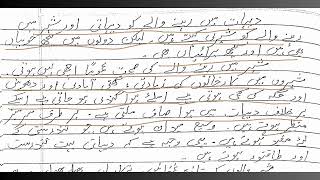 دیہات میں رہنے والے کو دیہاتی اور شہر میں
رہنے والے کو شہری کہتے ہیں۔ لیکن دونوں میں کچھ خوبیاں
بھی ہیں اور کچھ برائیاں بھی۔
شہر میں رہنے والے کی صحت عموماً اچھی نہیں ہوتی۔
شہروں میں کارخانوں کی زیادتی، گھنی آبادی اور دھوئیں
اور کی بھی ہوتی ہے اسلئے ہوا گندی ہو جاتی ہے اسکے
برخلاف دیہات میں ہوا صاف ملتی ہے۔ ہر طرف سرسبز
منظر ہوتے ہیں۔ وسیع میدان ہوتے ہیں جو تندرستی کے
لئے مفید ہوتے ہیں۔ یہی وجہ ہے کہ دیہاتی بہت تندرست
اور طاقتور ہوتے ہیں۔